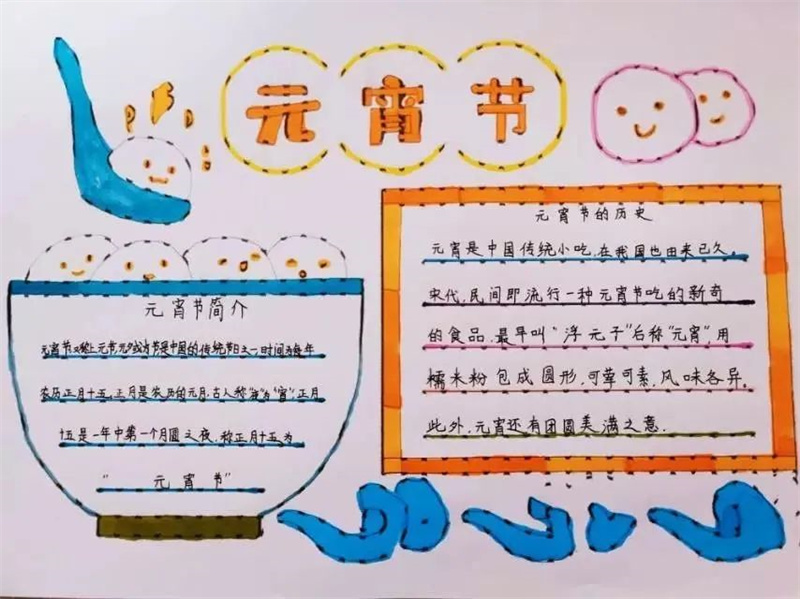 元宵节
元宵节简介
元宵节又称上元节,元夕或灯节是中国的传统节日之一,时间为每年
农历正月十五,正月是农历的元月,古人称"夜"为"宵",正月
十五是一年中第一个月圆之夜,称正月十五为
"元宵节"
元宵节的历史
元宵是中国传统小吃,在我国也由来已久。
宋代,民间即流行一种元宵节吃的新奇
的食品,最早叫"浮元子"后称"元宵",用
糯米粉包成圆形,可荤可素,风味各异。
此外,元宵还有团圆美满之意.